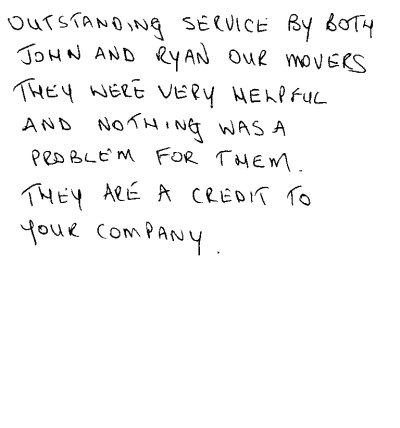 OUTSTANDING SERVICE BY BOTH
JOHN AND RYAN OUR MOVERS
THEY WERE VERY HELPFUL
AND NOTHING WAS A
PROBLEM FOR THEM.
THEY ARE A CREDIT TO
YOUR COMPANY.